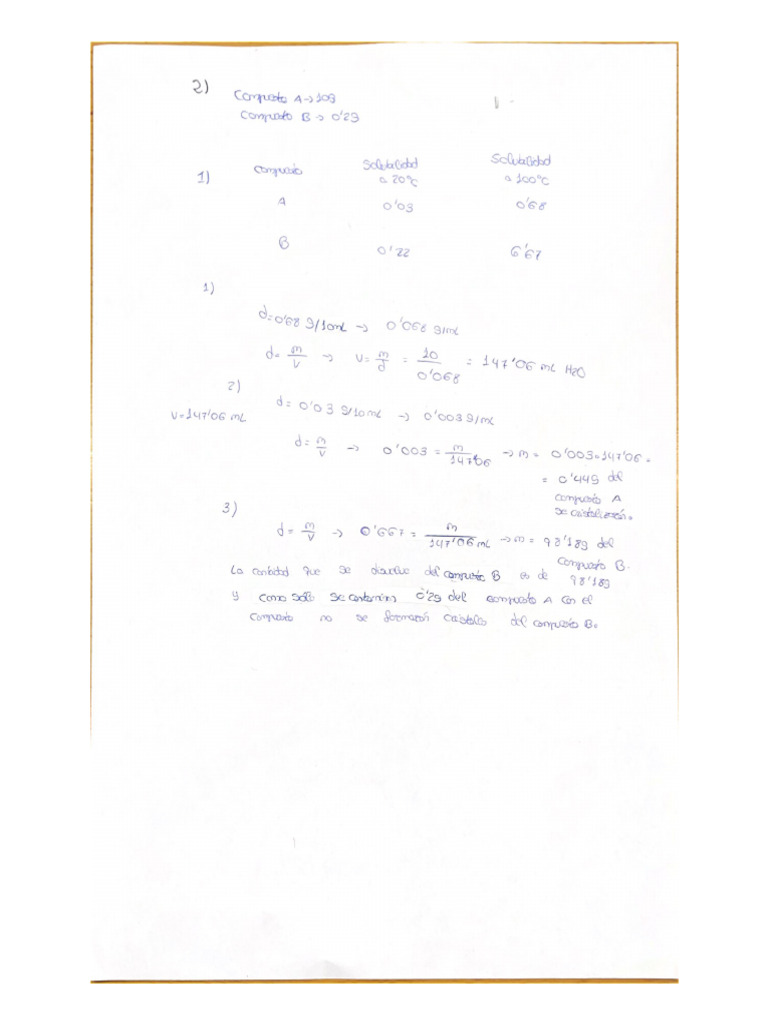 2)
Compuesto A → 10g
Compuesto B → 0'2g
1) Compuesto Solubilidad a 20ºC Solubilidad a 100ºC
A 0'03 0'68
B 0'22 6'67
1)
d = 0'68 g/10mL → 0'068 g/mL
d = m/v → v = m/d = 10/0'068 = 147'06 mL H2O
2)
v = 147'06 mL d = 0'03 g/10mL → 0'003 g/mL
d = m/v → 0'003 = m/147'06 → m = 0'003 · 147'06 =
= 0'44g del
compuesto A
se cristalizarán.
3)
d = m/v → 0'667 = m/147'06 mL → m = 98'18g del
compuesto B.
La cantidad que se disuelve del compuesto B es de 98'18g
y como sólo se contamina 0'2g del compuesto A con el
compuesto no se formarán cristales del compuesto B.